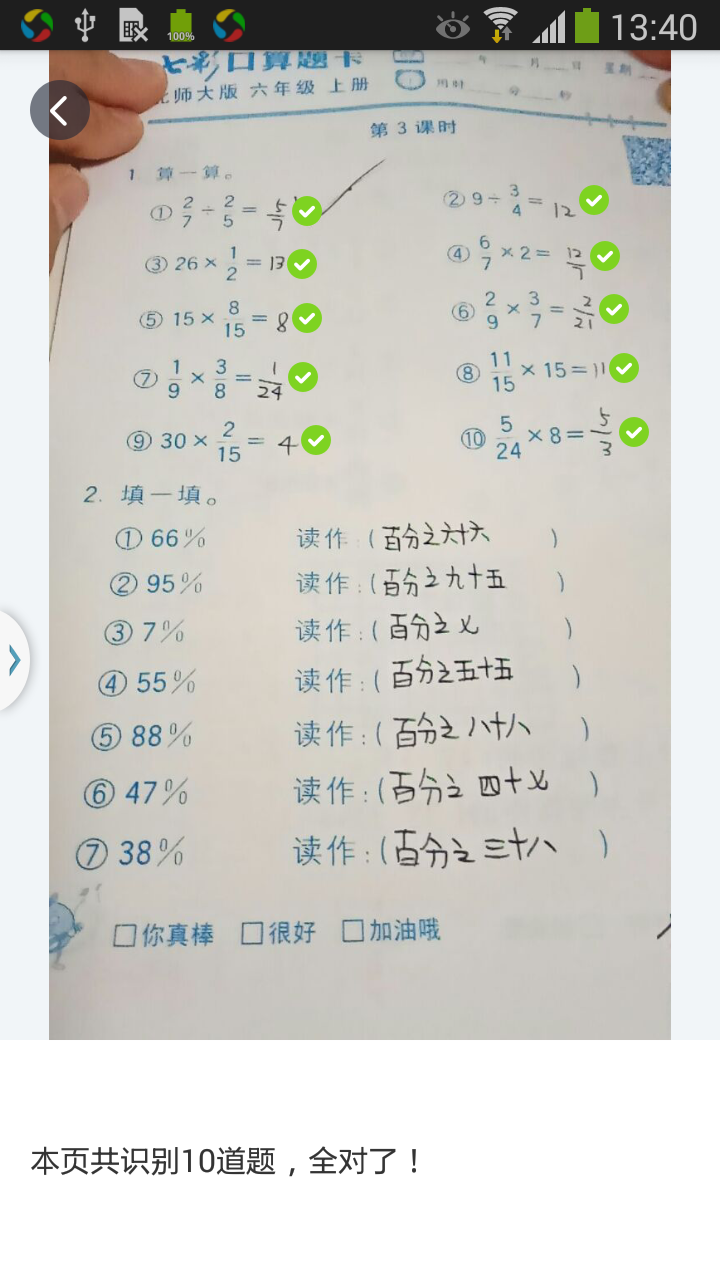 100% 13:40
七彩口算题卡 年 月 日 星期
北师大版 六年级 上册 用时 分 秒
第3课时
1 算一算。
① 2/7 ÷ 2/5 = 5/7 ② 9 ÷ 3/4 = 12
③ 26 × 1/2 = 13 ④ 6/7 × 2 = 12/7
⑤ 15 × 8/15 = 8 ⑥ 2/9 × 3/7 = 2/21
⑦ 1/9 × 3/8 = 1/24 ⑧ 11/15 × 15 = 11
⑨ 30 × 2/15 = 4 ⑩ 5/24 × 8 = 5/3
2. 填一填。
① 66% 读作:(百分之六十六)
② 95% 读作:(百分之九十五)
③ 7% 读作:(百分之七)
④ 55% 读作:(百分之五十五)
⑤ 88% 读作:(百分之八十八)
⑥ 47% 读作:(百分之四十七)
⑦ 38% 读作:(百分之三十八)
□你真棒 □很好 □加油哦
本页共识别10道题，全对了！